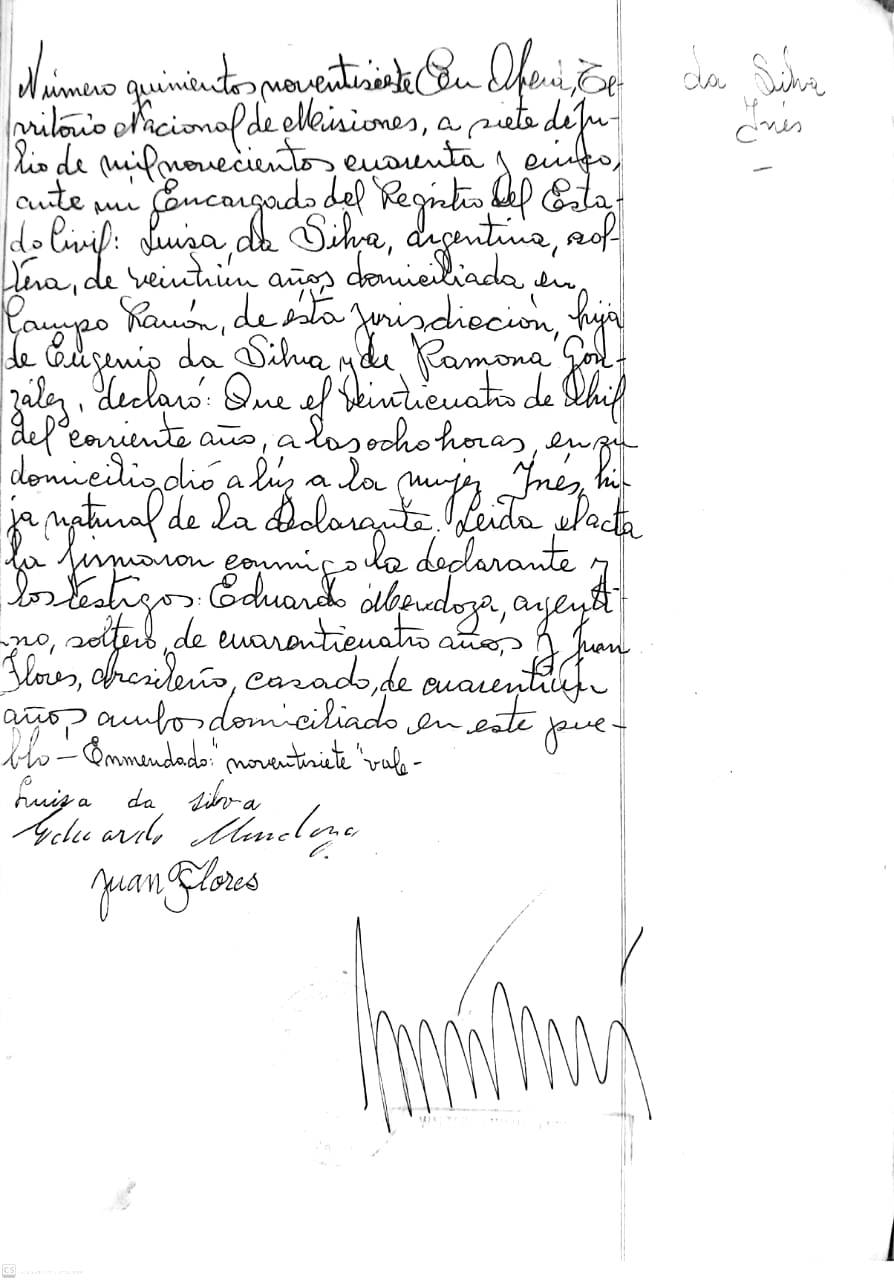 Número quinientos noventisiete En Oberá, Te-
rritório Nacional de Misiones, a siete de ju-
lio de mil novecientos cuarenta y cinco,
ante mi Encargado del Registro del Esta-
do Civil: Luisa da Silva, argentina, sol-
tera, de veintiún años, domiciliada en
Campo Ramón, de ésta jurisdicción, hija
de Eugenio da Silva y de Ramona Gon-
zález, declaró: Que el veinticuatro de Abril
del corriente año, a las ocho horas, en su
domicilio dió a lúz a la mujer Inés, hi-
ja natural de la declarante. Leida el acta
la firmaron conmigo la declarante y
los testigos: Eduardo Mendoza, argenti-
no, soltero, de cuarenticuatro años, y Juan
Flores, brasileño, casado, de cuarentiún
años, ambos domiciliado en este pue-
blo - Enmendado: "noventisiete" vale -
Luisa da silva
Eduardo Mendoza
Juan Flores
da Silva
Inés
CS